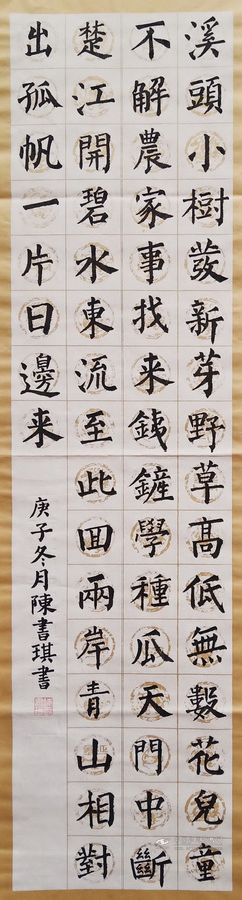 溪頭小樹發新芽野草髙低無數花兒童
不解農家事找来銕鏟學種瓜天門中斷
楚江開碧水東流至此囬兩岸青山相對
出孤帆一片日邊来
庚子冬月陳書琪書